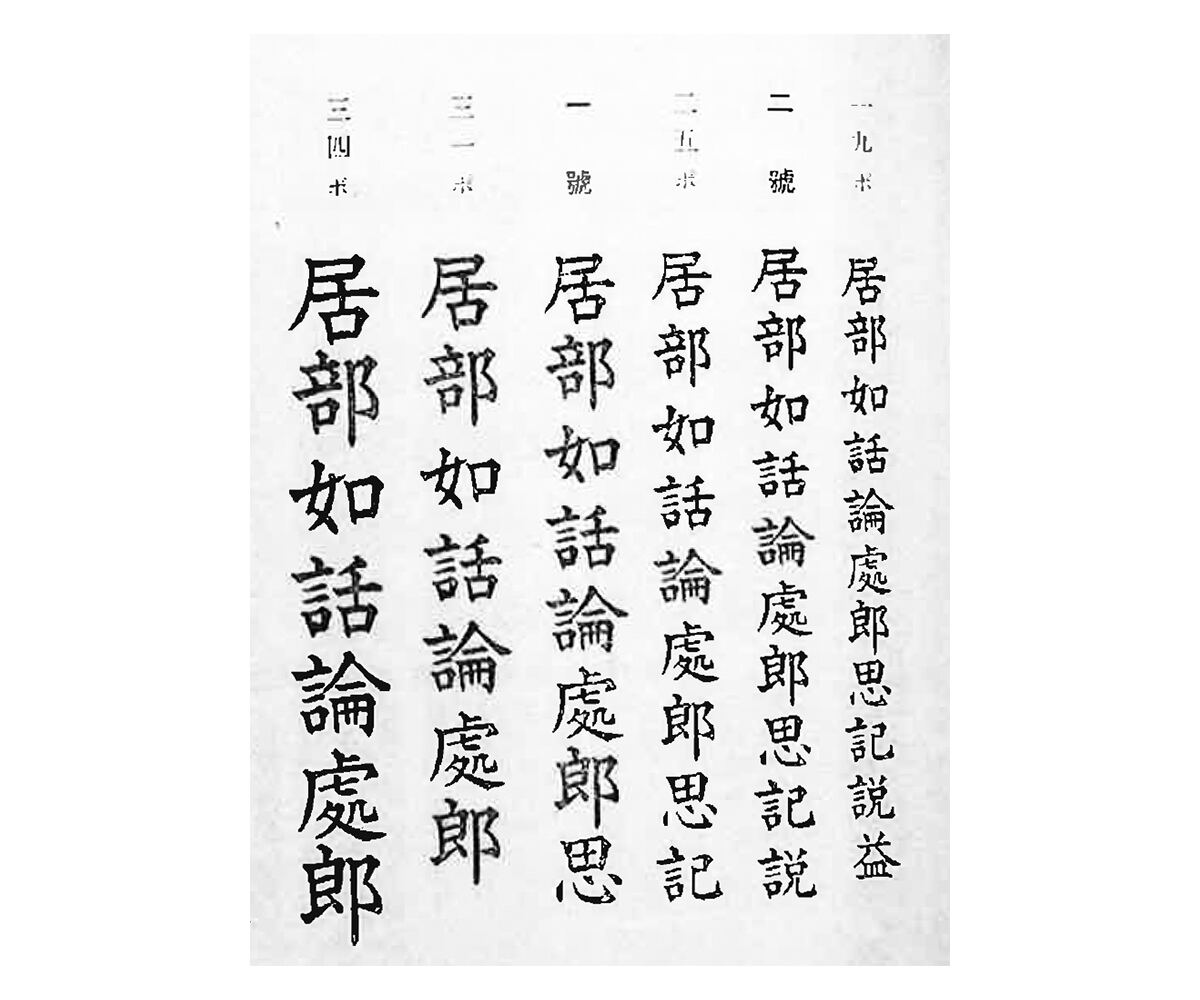 一九ポ
居部如話論處郎思記説益
二號
居部如話論處郎思記説
二五ポ
居部如話論處郎思記
一號
居部如話論處郎思
三一ポ
居部如話論處郎
三四ポ
居部如話論處郎